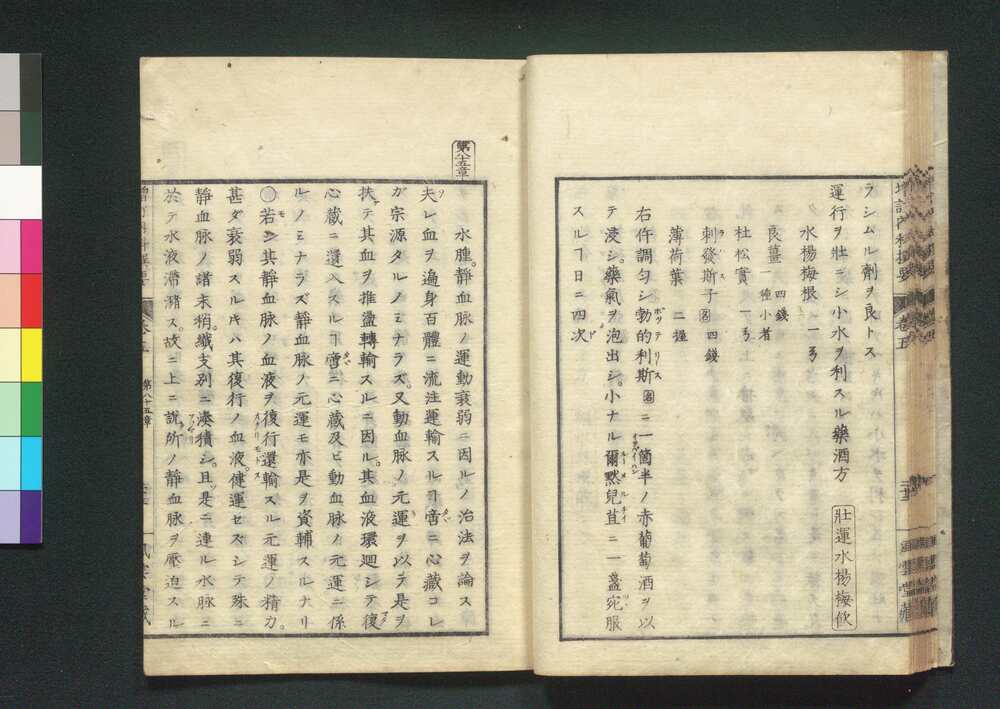 ラシムル劑ヲ良トス
運行ヲ壯ニシ小水ヲ利スル藥酒方
壯運水楊梅飮
水楊梅根 一ᄝ
良薑 一種小者 四錢
杜松實 一ᄝ
刺發斯子 名 四錢
ラパス
薄荷葉 二握
右件調勻シ勃的利斯ニ一箇半ノ赤葡萄酒ヲ以
ボッテリス
テ浸シ。藥氣ヲ泡出シ。小ナル爾默兒苴ニ一盞宛服
スルヿ日ニ四次
増訂内科撰要
卷五
第八十五章
水腫。靜血脉ノ運動衰弱ニ因ルノ治法ヲ論ス
夫レ血ヲ遍身百體ニ流注運輸スルヿ啻ニ心藏コレ
ガ宗源タルノミナラズ。又動血脉ノ元運ヲ以テ是ヲ
扶テ其血ヲ推盪轉輸スルニ因ル。其血液環廻シテ復
心藏ニ還入スルヿ啻ニ心藏及ビ動血脉ノ元運ニ係
ルノミナラズ靜血脉ノ元運モ亦是ヲ資輔スルナリ
○若シ其靜血脉ノ血液ヲ復行還輸スル元運ノ精力。
甚ダ衰弱スルキハ其復行ノ血液。健運セズシテ殊ニ
靜血脉ノ諸末稍。纎支別ニ湊積シ。且是ニ連ル水脉ニ
於テ水液滯瀦ス。故ニ上ニ說所ノ靜血脉ヲ壓迫スル
卷五
第八十五章